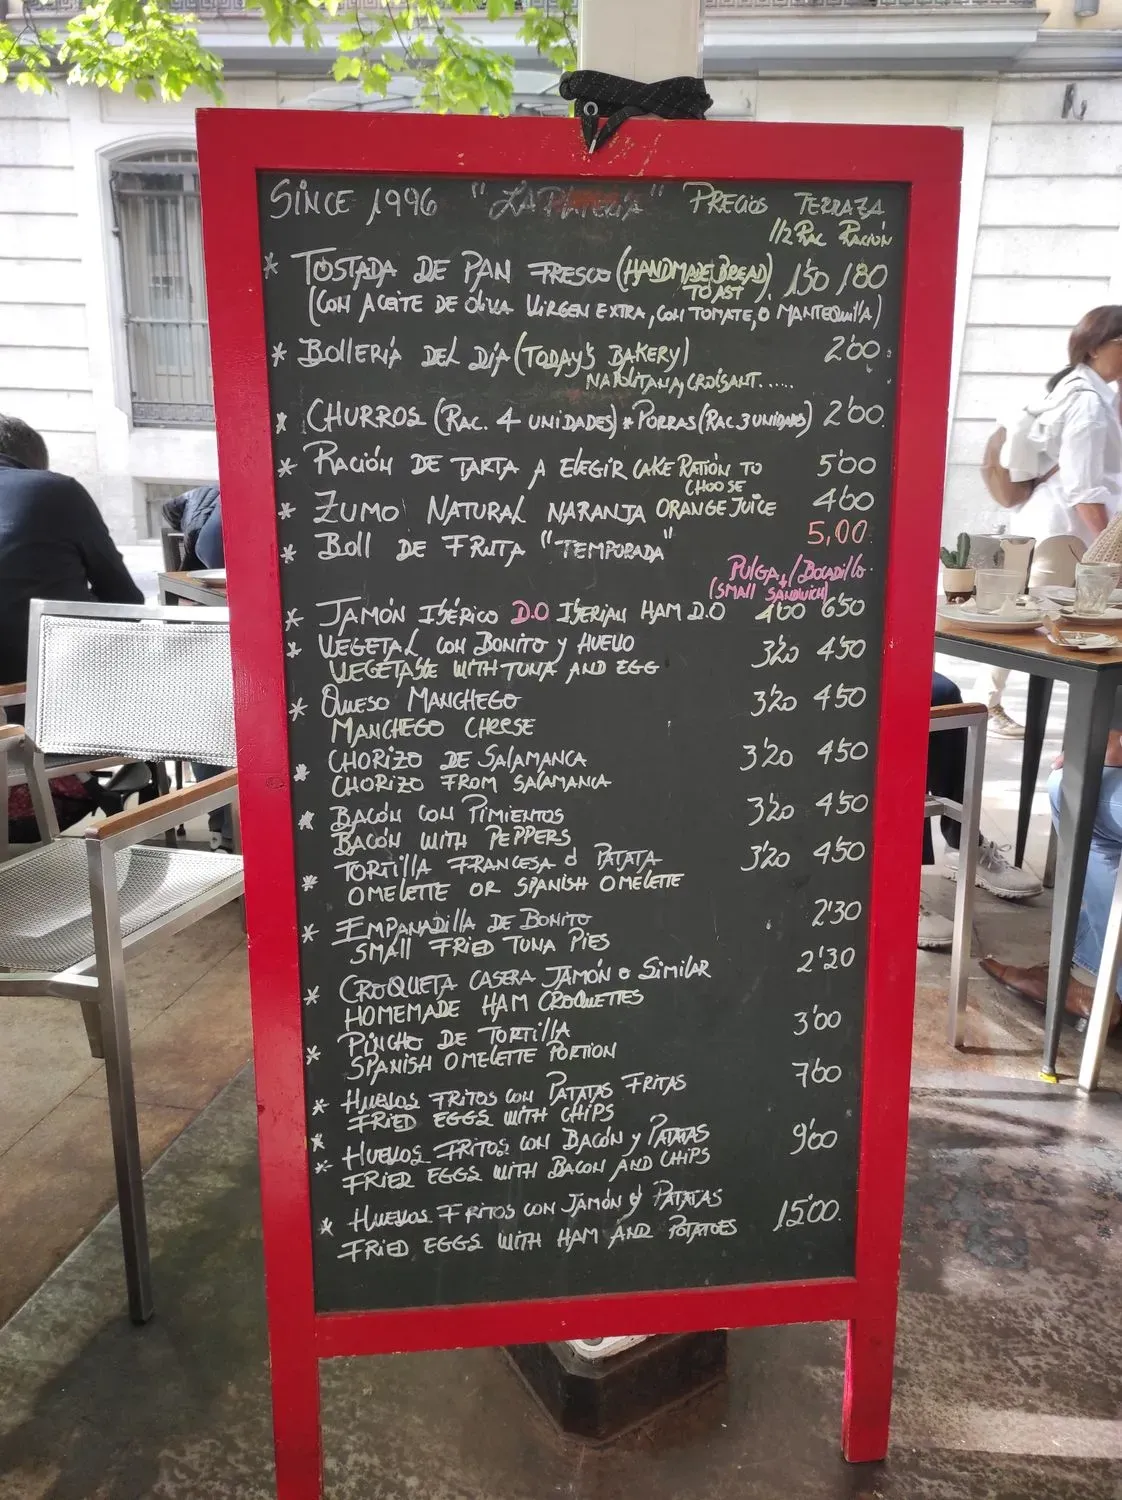 SINCE 1996 "LA PLATERIA" PRECIOS TERRAZA
1/2 RAC RACIÓN
* TOSTADA DE PAN FRESCO (HANDMADE BREAD) 1'50 1'80
TOAST
(CON ACEITE DE OLIVA VIRGEN EXTRA, CON TOMATE, O MANTEQUILLA)
* BOLLERÍA DEL DÍA (TODAY'S BAKERY) 2'00
NAPOLITANA, CROISANT......
* CHURROS (RAC. 4 UNIDADES) * PORRAS (RAC. 3 UNIDADES) 2'00
* RACIÓN DE TARTA A ELEGIR CAKE RATION TO 5'00
CHOOSE
* ZUMO NATURAL NARANJA ORANGE JUICE 4'00
* BOLL DE FRUTA "TEMPORADA" 5,00
PULGA / BOCADILLO
(SMALL SANDWICH)
* JAMÓN IBÉRICO D.O IBERIAN HAM D.O 4'00 6'50
* VEGETAL CON BONITO Y HUEVO 3'20 4'50
VEGETABLE WITH TUNA AND EGG
* QUESO MANCHEGO 3'20 4'50
MANCHEGO CHEESE
* CHORIZO DE SALAMANCA 3'20 4'50
CHORIZO FROM SALAMANCA
* BACÓN CON PIMIENTOS 3'20 4'50
BACÓN WITH PEPPERS
* TORTILLA FRANCESA ó PATATA 3'20 4'50
OMELETTE OR SPANISH OMELETTE
* EMPANADILLA DE BONITO 2'30
SMALL FRIED TUNA PIES
* CROQUETA CASERA JAMÓN o SIMILAR 2'30
HOMEMADE HAM CROQUETTES
* PINCHO DE TORTILLA 3'00
SPANISH OMELETTE PORTION
* HUEVOS FRITOS CON PATATAS FRITAS 7'00
FRIED EGGS WITH CHIPS
* HUEVOS FRITOS CON BACÓN Y PATATAS 9'00
FRIED EGGS WITH BACON AND CHIPS
* HUEVOS FRITOS CON JAMÓN Y PATATAS 15'00
FRIED EGGS WITH HAM AND POTATOES